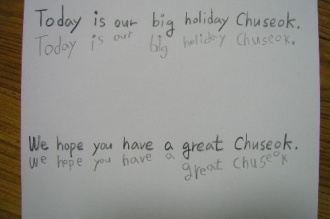 Today is our big holiday Chuseok.
Today is our big holiday Chuseok.
We hope you have a great Chuseok.
We hope you have a great Chuseok